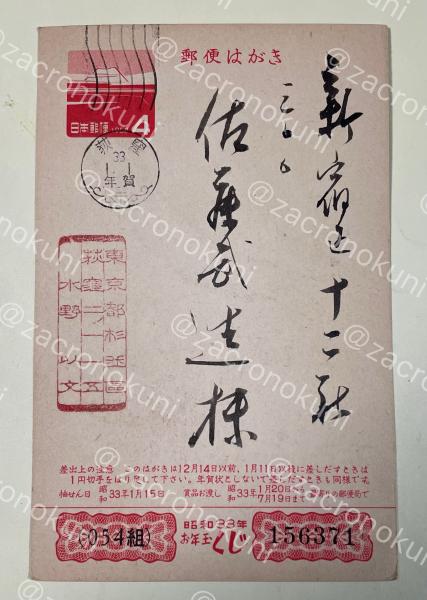 郵便はがき
日本郵便
4
荻窪
33
1.1
年賀
新宿区十二社
三〇六
佐藤武造様
東京都杉並区
荻窪二ノ一五
水野以文
差出上の注意 このはがきは12月14日以前、1月11日以後に差しだすときは
1円切手をはり足して下さい。年賀状としないで差しだすときも同様です。
抽せん日 昭和33年1月15日 賞品お渡し 昭和 1月20日から 7月19日まで 最寄りの郵便局で
(054組)
昭和33年
お年玉くじ
156371
@zacronokuni